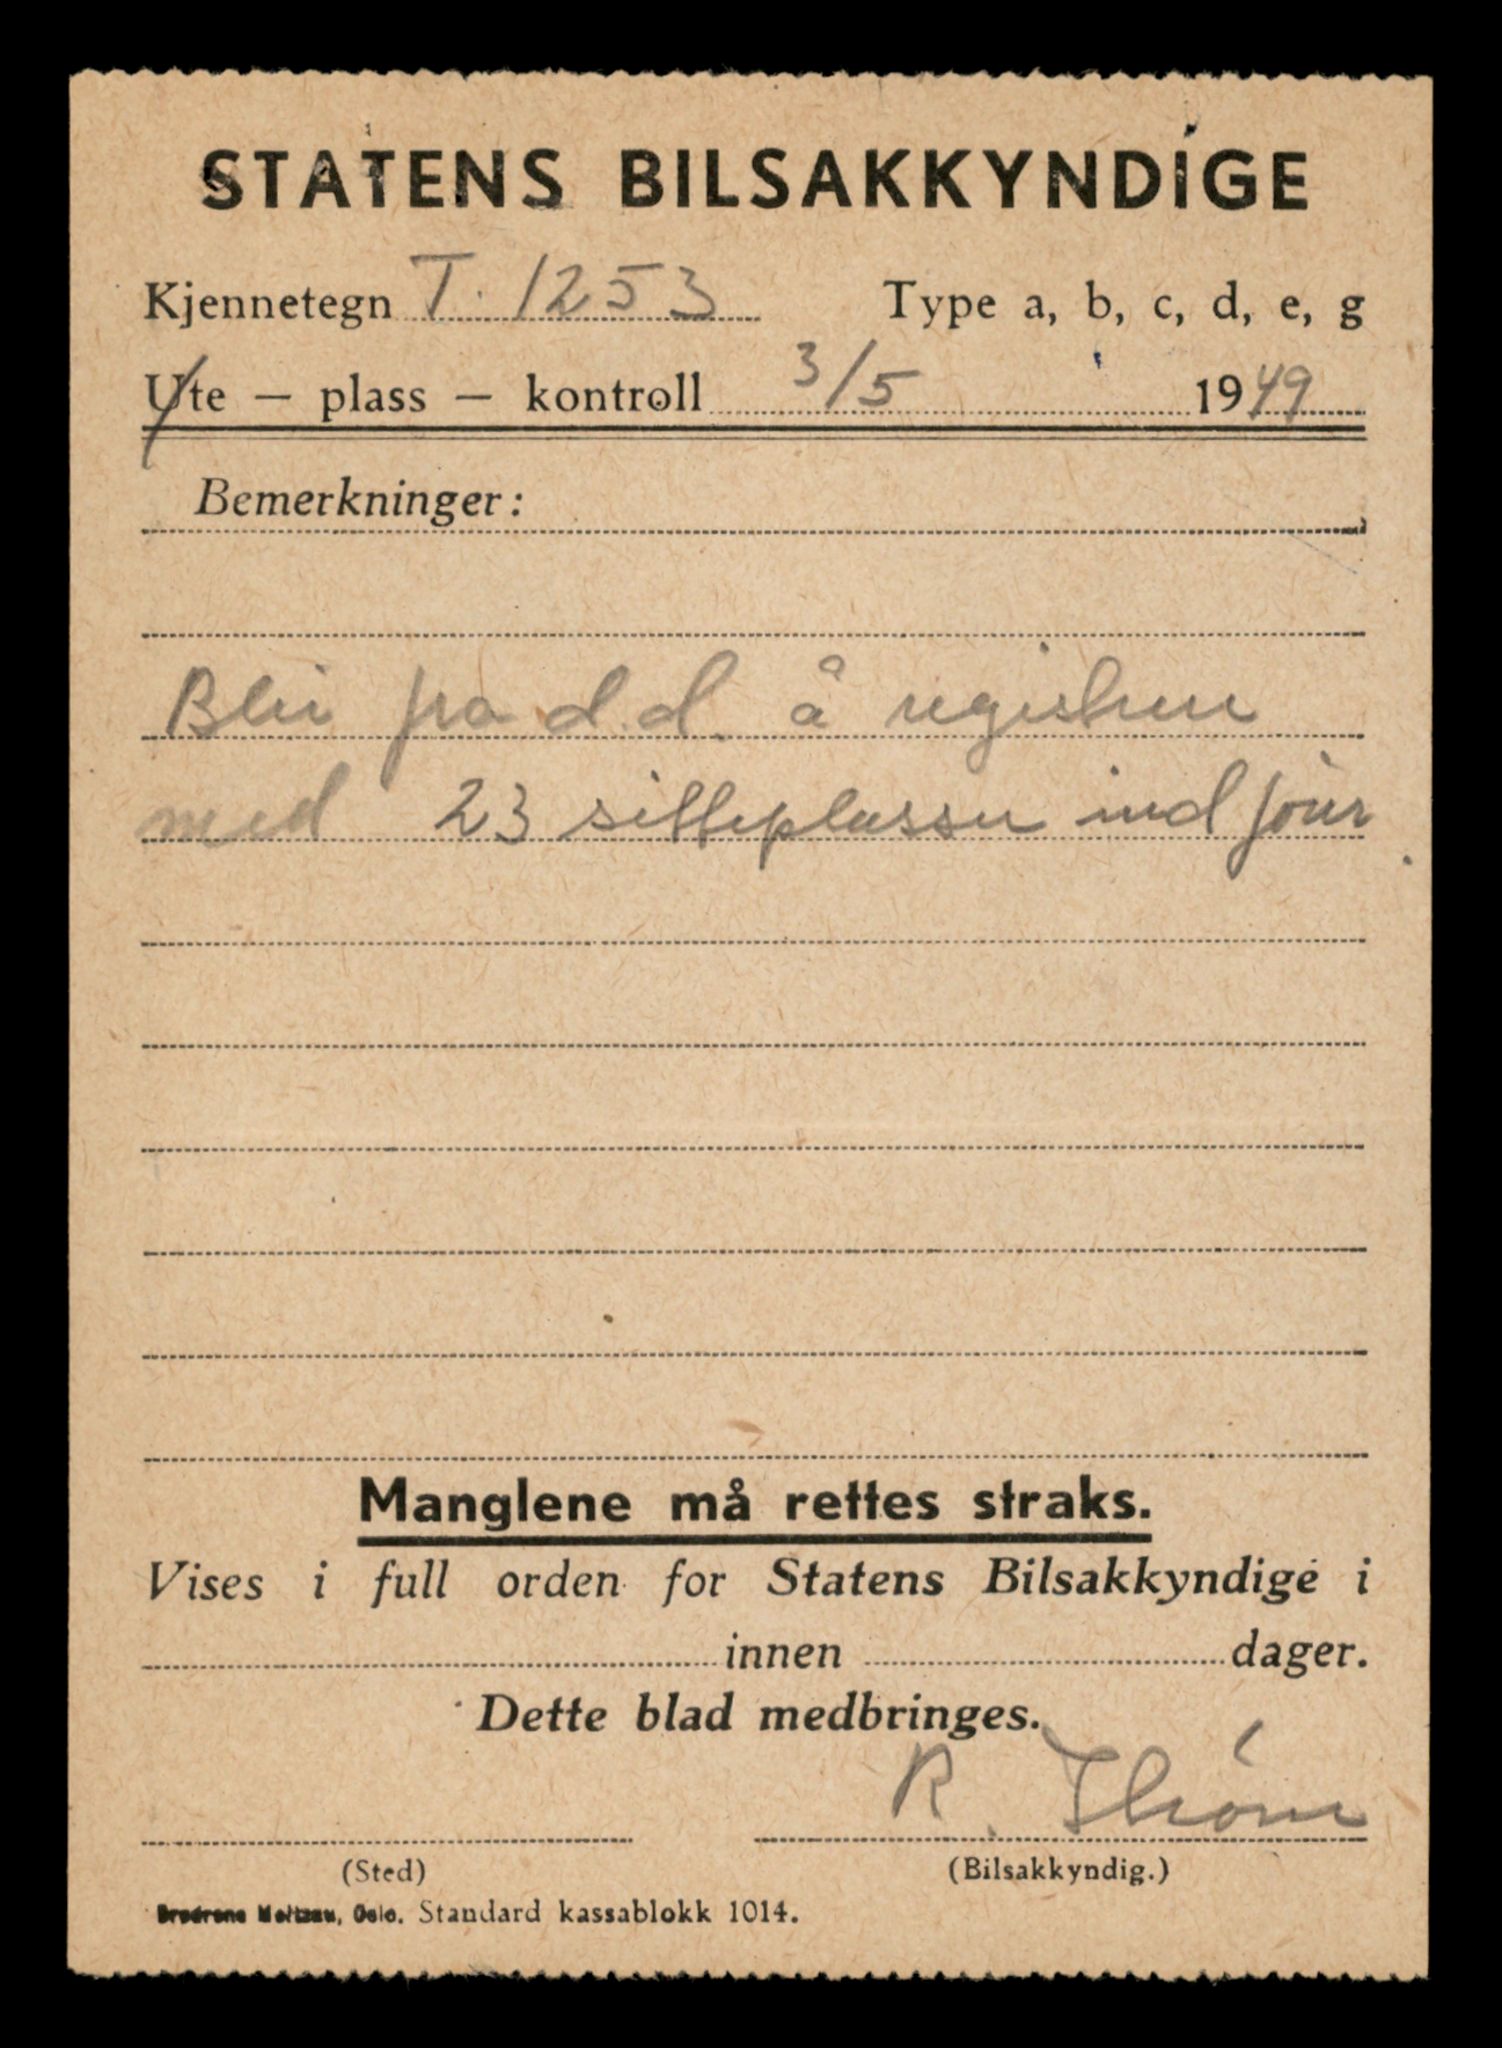 STATENS BILSAKKYNDIGE
Kjennetegn T. 1253 Type a, b, c, d, e, g
Ute — plass — kontroll 3/5 1949
Bemerkninger:
Blir fra d.d. å registrere
med 23 sitteplasser ind fører
Manglene må rettes straks.
Vises i full orden for Statens Bilsakkyndige i
innen dager.
Dette blad medbringes.
R. Thrøni
(Sted) (Bilsakkyndig.)
Brødrene Meltzau, Oslo. Standard kassablokk 1014.